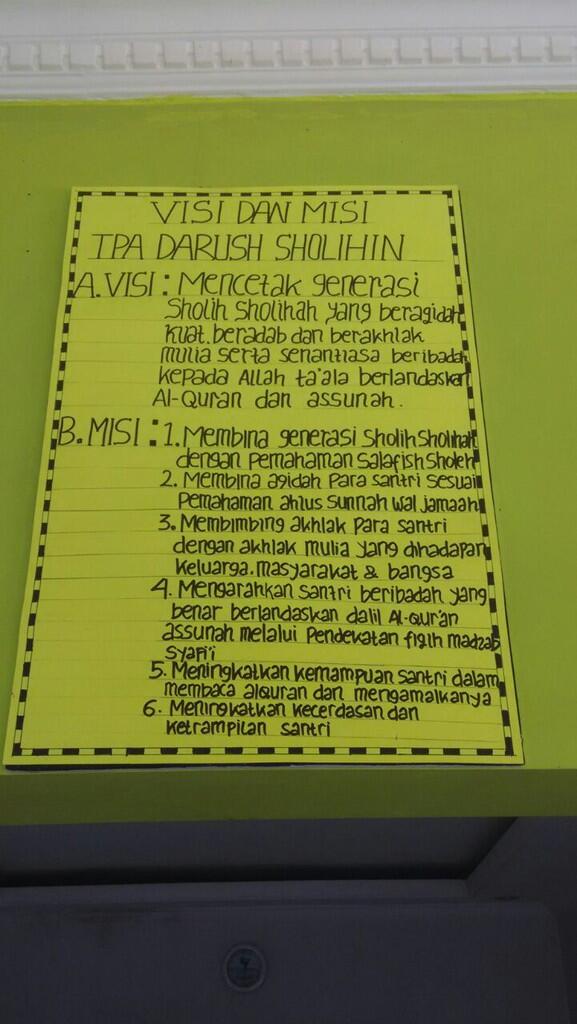 VISI DAN MISI
TPA DARUSH SHOLIHIN
A. VISI : Mencetak generasi
Sholih Sholihah yang beraqidah
kuat, beradab dan berakhlak
mulia serta senantiasa beribadah
kepada Allah ta'ala berlandaskan
Al-Quran dan assunah.
B. MISI : 1. Membina generasi Sholih Sholihah
dengan pemahaman Salafish Sholeh
2. Membina aqidah Para santri sesuai
Pemahaman ahlus Sunnah wal jamaah
3. Membimbing akhlak Para santri
dengan akhlak mulia yang dihadapan
keluarga, masyarakat & bangsa
4. Mengarahkan santri beribadah yang
benar berlandaskan dalil Al-qur'an
assunah melalui Pendekatan fiqih madzab
Syafi'i
5. Meningkatkan kemampuan santri dalam
membaca alquran dan mengamalkanya
6. Meningkatkan kecerdasan dan
ketrampilan santri